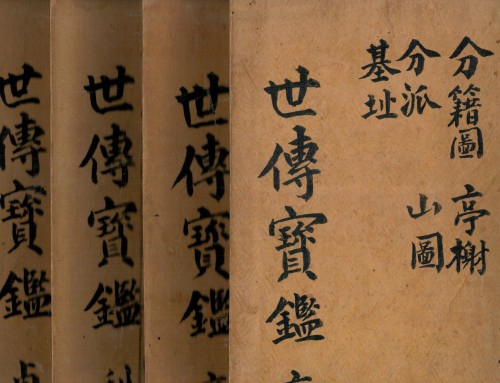 分籍圖 亭榭
分派 山圖
基址
世傳寶鑑
世傳寶鑑
世傳寶鑑
世傳寶鑑